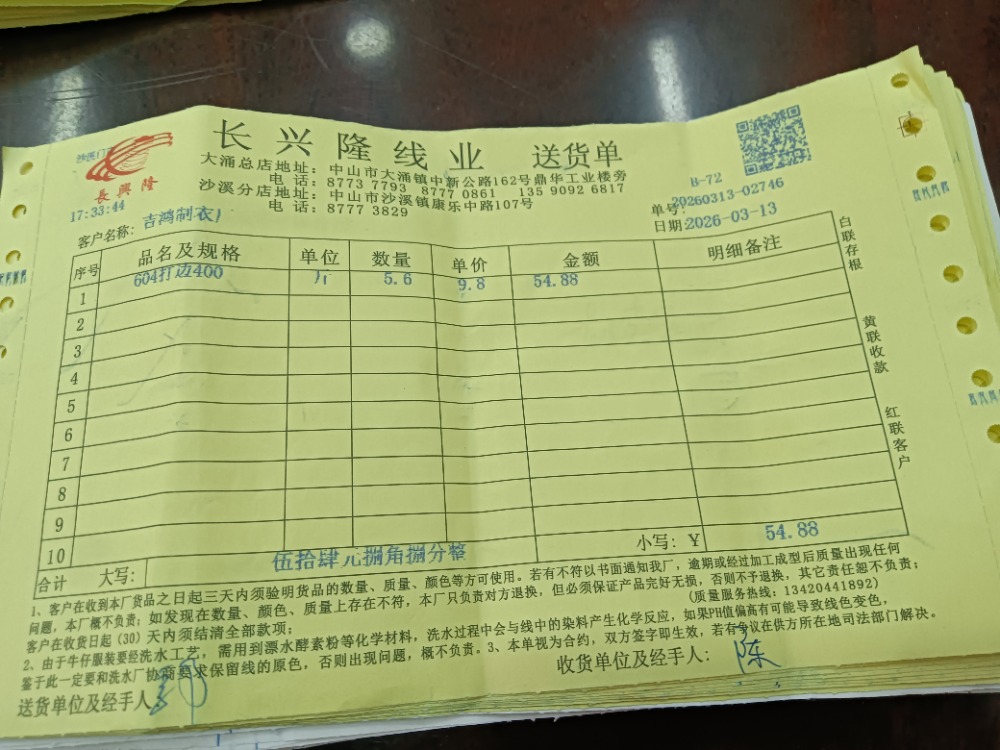 長興隆
长兴隆线业 送货单
大涌总店地址：中山市大涌镇中新公路162号鼎华工业楼旁
电话：8773 7793 8777 0861 135 9092 6817
沙溪分店地址：中山市沙溪镇康乐中路107号
电话：8777 3829
B-72
17:33:44
单号：20260313-02746
客户名称：吉鸿制衣厂
日期：2026-03-13
序号 品名及规格 单位 数量 单价 金额 明细备注
1 604打边400 斤 5.6 9.8 54.88
2
3
4
5
6
7
8
9
10
合计 大写：伍拾肆元捌角捌分整 小写：Y 54.88
白联存根
黄联收款
红联客户
1、客户在收到本厂货品之日起三天内须验明货品的数量、质量、颜色等方可使用。若有不符以书面通知我厂，逾期或经过加工成型后质量出现任何
问题，本厂概不负责；如发现在数量、颜色、质量上存在不符，本厂只负责对方退换，但必须保证产品完好无损，否则不予退换，其它责任恕不负责；
客户在收货日起（30）天内须结清全部款项； （质量服务热线：13420441892）
2、由于牛仔服装要经洗水工艺，需用到漂水酵素粉等化学材料，洗水过程中会与线中的染料产生化学反应，如果PH值偏高有可能导致线色变色，
鉴于此一定要和洗水厂协商要求保留线的原色，否则出现问题，概不负责。3、本单视为合约，双方签字即生效，若有争议在供方所在地司法部门解决。
送货单位及经手人：
收货单位及经手人：陈